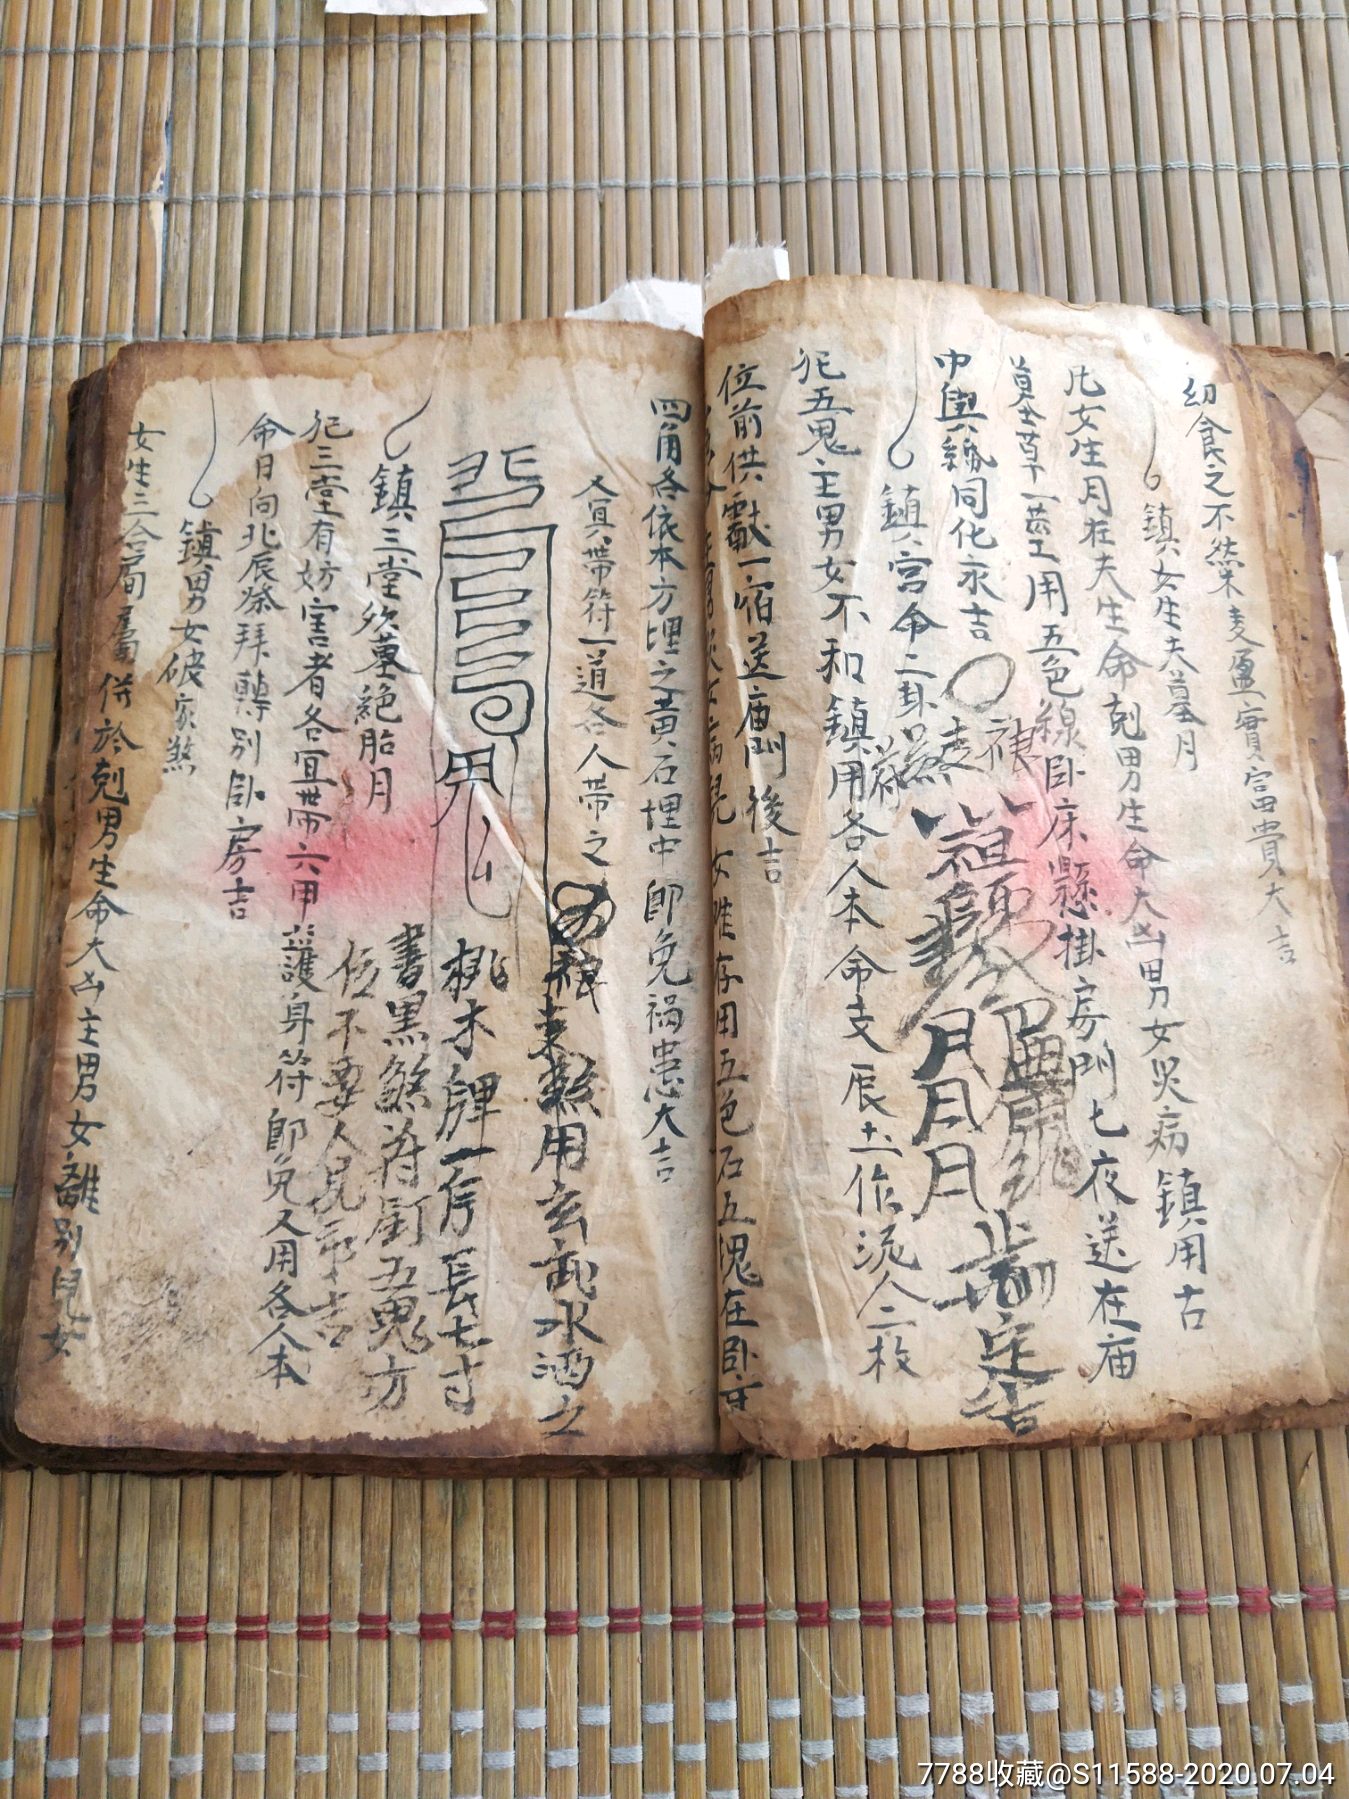 幼食之不然麦盈實富貴大吉
鎮女生夫墓月
凡女生月在夫生命剋男生命大凶男女災病鎮用古
墓草一莖用五色線卧床懸掛房門七夜送在庙
中與紙同化永吉
鎮宫命二卦
犯五鬼主男女不和鎮用各人本命支辰土作泥人二枚
位前供獻一宿送庙門後吉
女難存用五色石五塊在卧房
四角各依本方埋之黄石埋中即免禍患大吉
又宜帶符一道各人帶之
煞用玄武水洒之
桃木牌一片長七寸
書黑煞符釘五鬼方
位不要人見示吉
鎮三堂殺墓絕胎月
犯三堂有妨害者各宜帶六甲護身符即免又用各人本
命日向北辰祭拜轉别卧房吉
鎮男女破家煞
女生三合局屬併於剋男生命大凶主男女離别兒女
7788收藏@S11588-2020.07.04